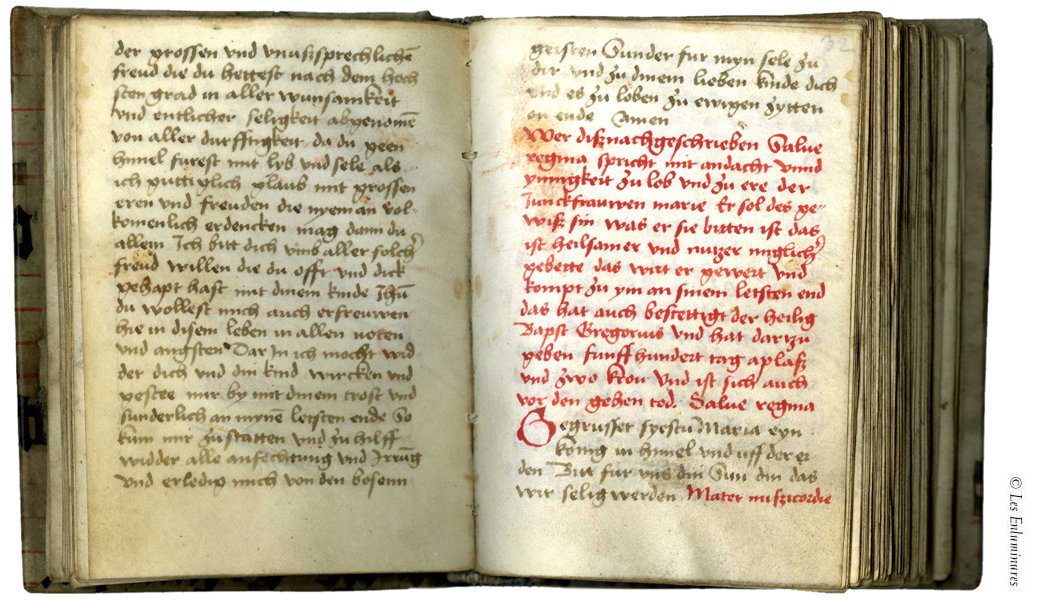 der grossen vnd vnussprechlichē
freud die du hettest nach dem hoch
sten grad in aller wunsamkeit
vnd entlicher seligkeit abgenomē
von aller durfftigkeit da du geen
himel furest mit lyb vnd sele als
ich gutteglich glaub mit grossen
eren vnd freuden die nyeman vol
komenlich erdencken mag dann du
allein Ich bitt dich vmb aller solch
freud willen die du offt vnd dick
gehapt hast mit dinem kinde Jhū
du wollest mich auch erfreuwen
hie in disem leben in allen noten
vnd angsten Dar In ich mocht wid
der dich vnd din kind wircken vnd
gestee mir by mit dinem trost vnd
sunderlich an mynē letsten ende So
kum mir zu statten vnd zu hilff
widder alle anfechtung vnd Irrūg
vnd erledig mich von den bosenn
geisten Sunder fur myn sele zu
dir vnd zu dinem lieben kinde dich
vnd es zu loben zu ewigen zytten
on ende Amen
Wer diß nachgeschrieben Salue
regina spricht mit andacht vnnd
ynnigkeit zu lob vnd zu ere der
Junckfrauwen marie Er sol des ge-
wiß sin was er sie bitten ist das
ist heilsamer vnd nutzer
gebette das wirt er gewert vnd
kompt zu ym an sinem letsten end
das hat auch bestettigt der heilig
Bapst Gregorius vnd hat darzu
geben funff hundert tag aplaß
vnd zwo kron Vnd ist sich auch
vor den gehen tod. Salue regina
Gegrusset syestu Maria eyn
konig in himel vnd vff der er
den Bitt fur vns din Sun din das
wir selig werden Mater misericordie
© Les Enluminures